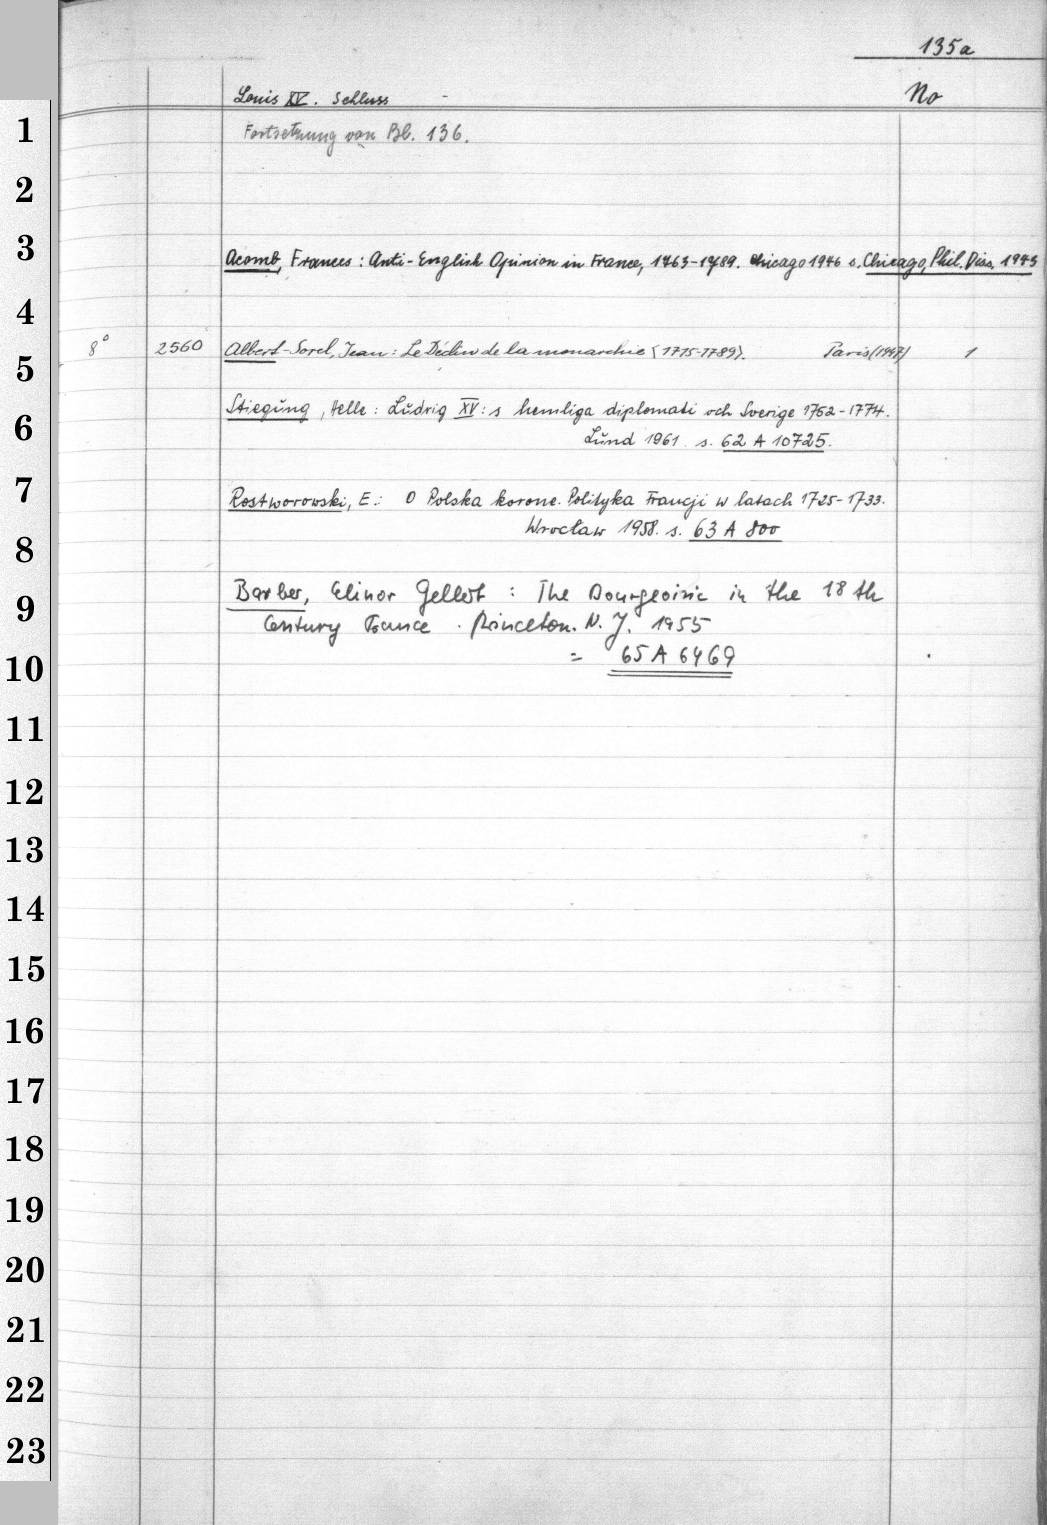 135a
Louis XV. Schluss - No
Fortsetzung von Bl. 136.
Acomb, Frances: Anti-English Opinion in France, 1763-1789. Chicago 1946 s. Chicago, Phil. Diss. 1943
8° 2560 Albert-Sorel, Jean: Le Déclin de la monarchie (1715-1789). Paris (1947) 1
Stiegung, Helle: Ludvig XV:s hemliga diplomati och Sverige 1752-1774.
Lund 1961. s. 62 A 10725.
Rostworowski, E.: O Polska korone. Polityka Francji w latach 1725-1733.
Wrocław 1958. s. 63 A 800
Barber, Elinor : The Bourgeoisie in the 18 th
Century France. Princeton. N. J. 1955
= 65 A 6469
1
2
3
4
5
6
7
8
9
10
11
12
13
14
15
16
17
18
19
20
21
22
23